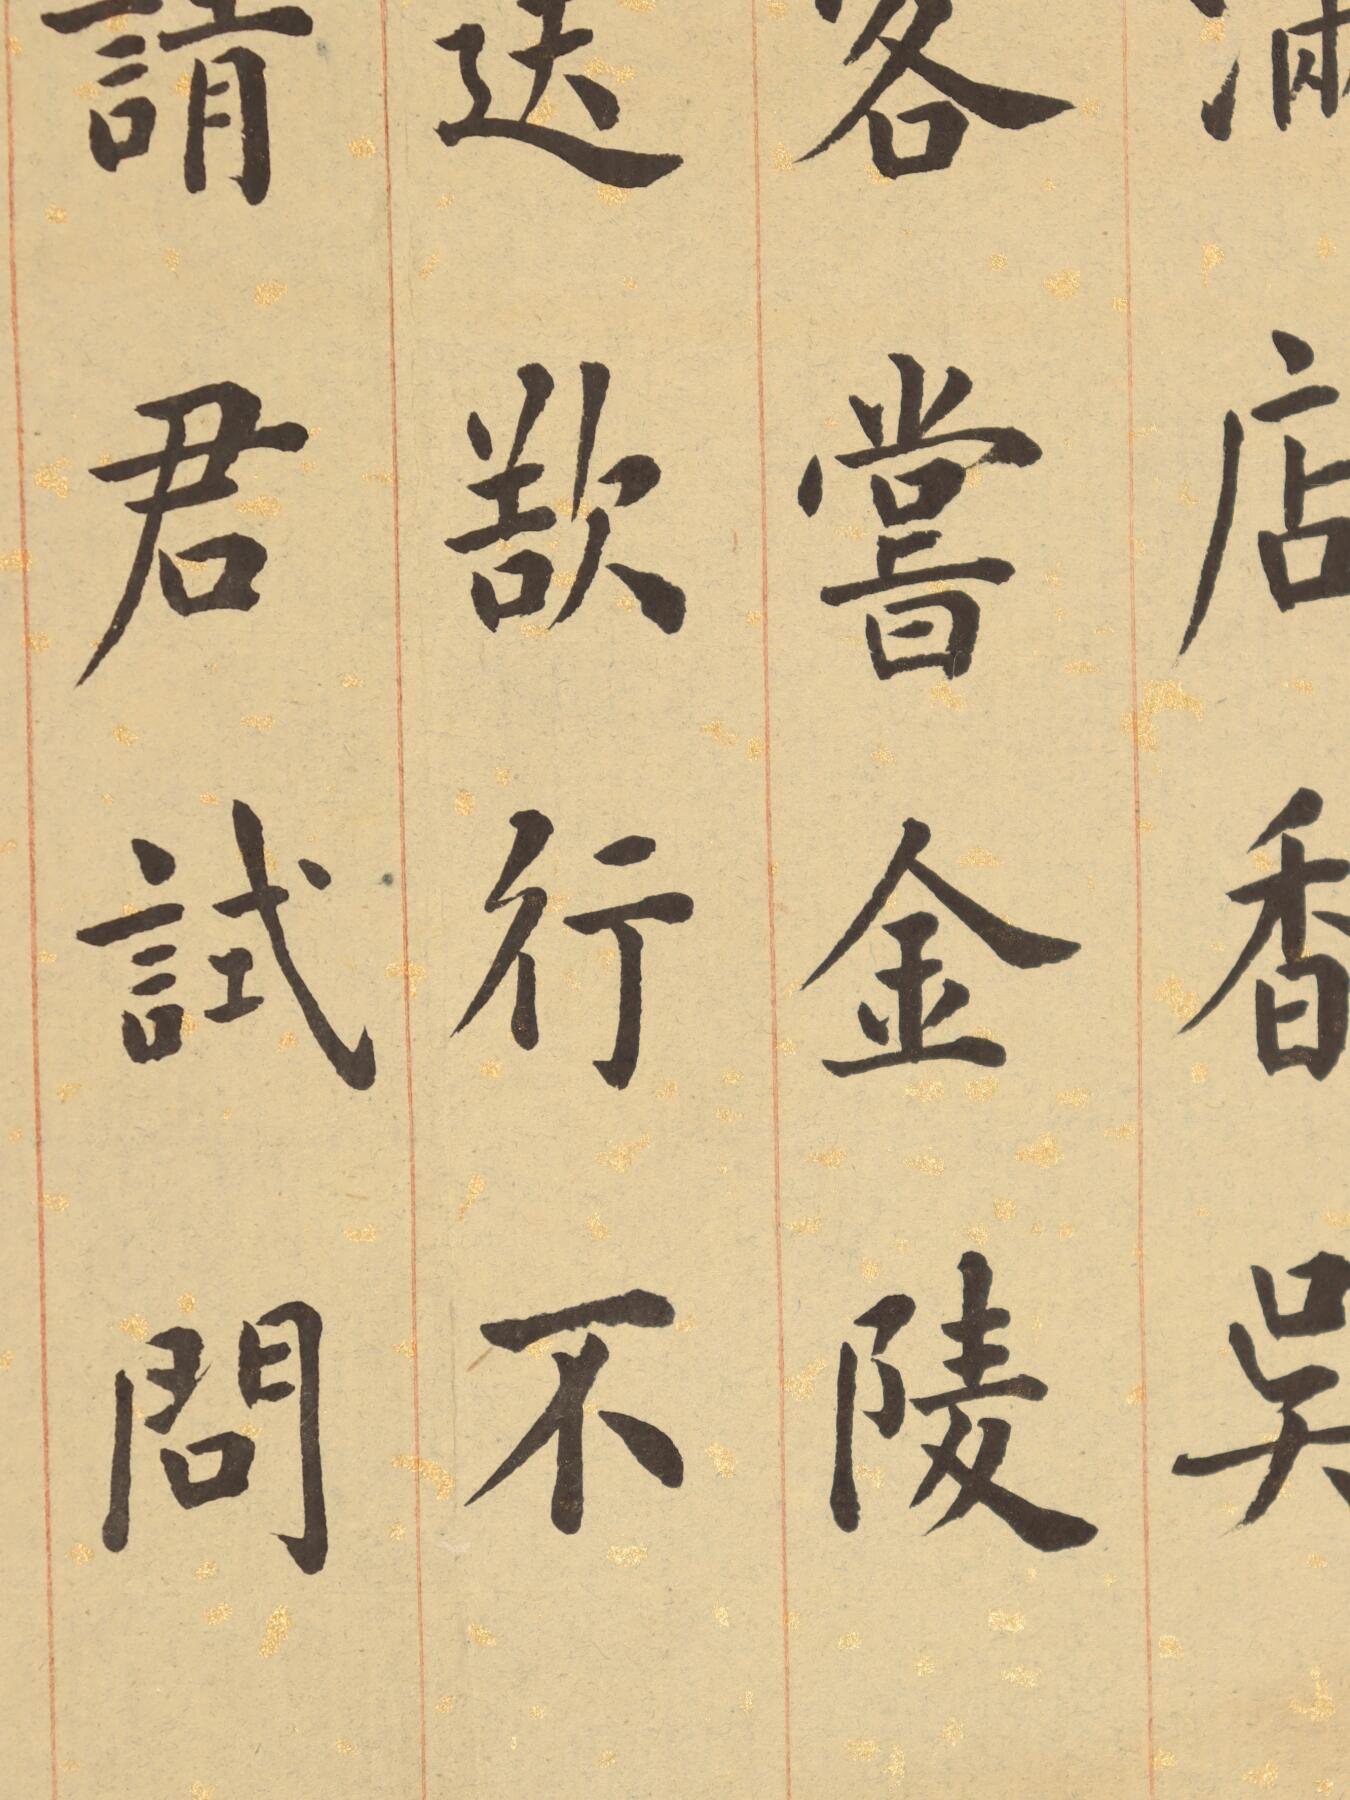 滿店香吳
客嘗金陵
送欲行不
請君試問